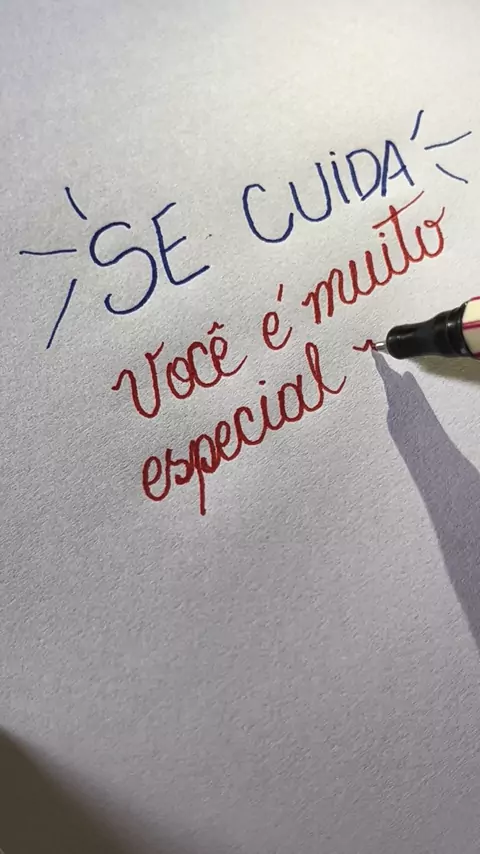 SE CUIDA
Você é muito
especial